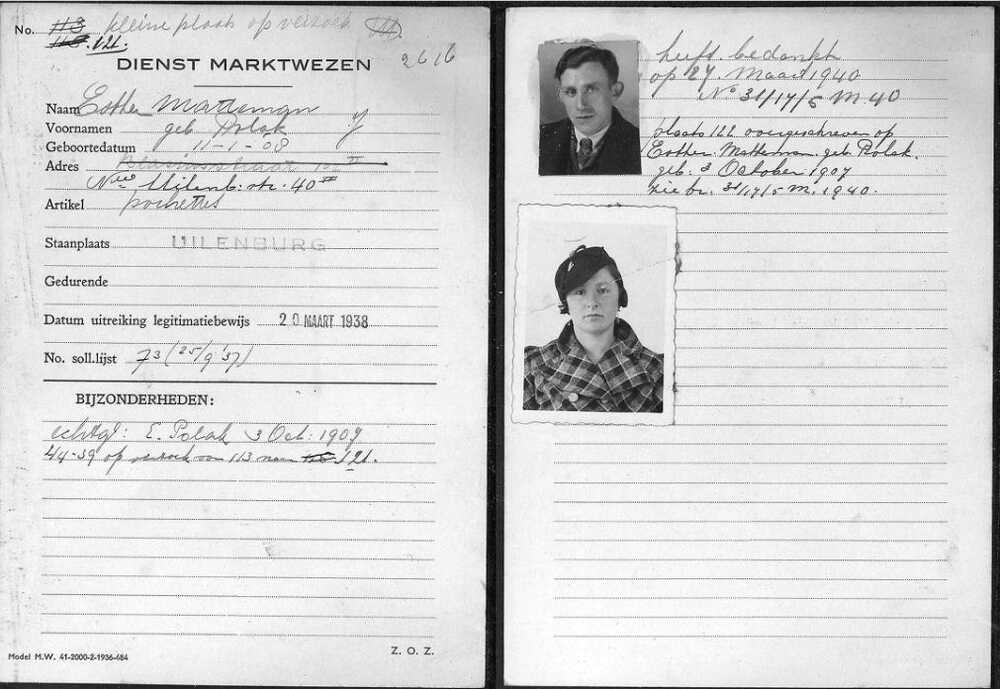 No. 113 kleine plaats op verzoek
118. 121.
2616
DIENST MARKTWEZEN
Naam Esther Matteman
Voornamen geb. Polak
Geboortedatum 11-1-08
Adres
Nwe Uilenb. str. 40 III
Artikel pochettes
Staanplaats UILENBURG
Gedurende
Datum uitreiking legitimatiebewijs 20 MAART 1938
No. soll.lijst 73 (25/9 '37)
BIJZONDERHEDEN:
echtgt: E. Polak 3 Oct: 1907
44-39 op verzoek van 113 naar 121.
Model M.W. 41-2000-2-1936-684
Z. O. Z.
heeft bedankt
op 27 Maart 1940
No 31/17/5 M. 40
plaats 122 overgeschreven op
Esther Matteman geb. Polak.
geb. 3 October 1907
zie br. 31/17/5 M. 1940.